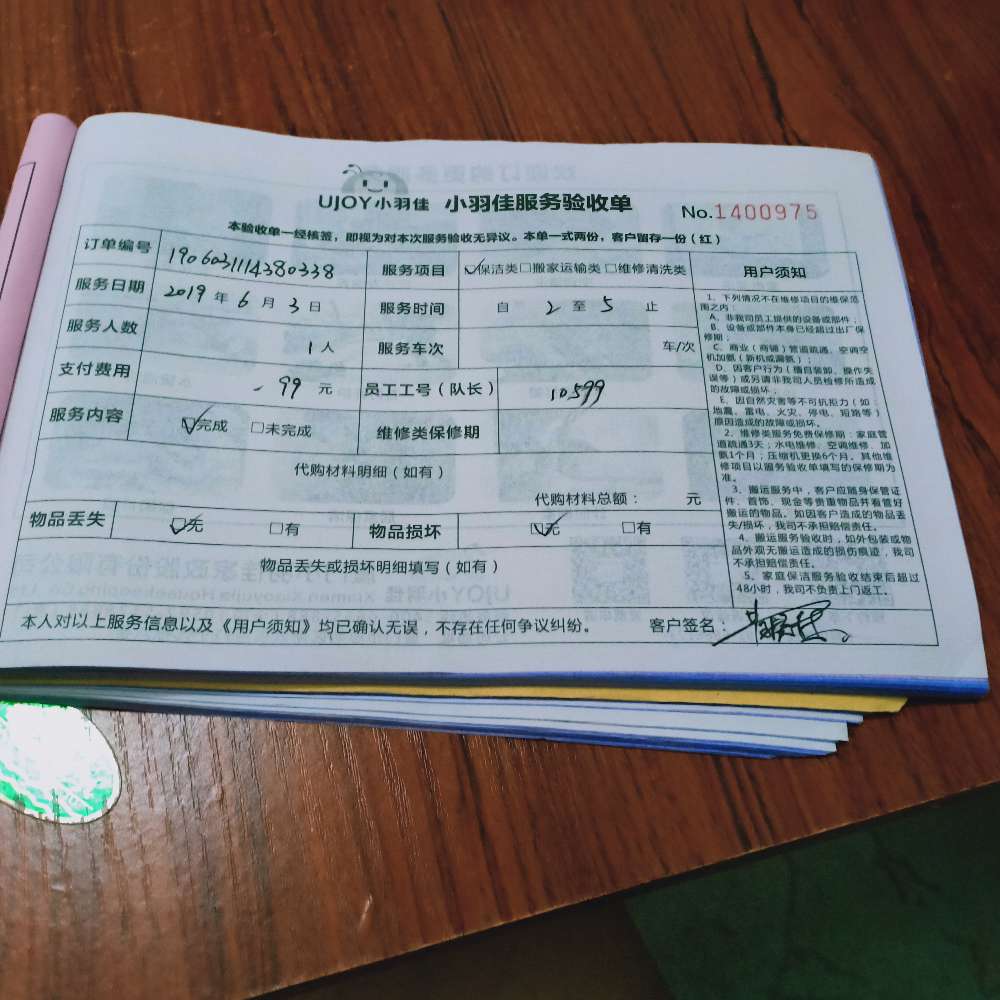 UJOY小羽佳 小羽佳服务验收单 No.1400975
本验收单一经核签，即视为对本次服务验收无异议。本单一式两份，客户留存一份（红）
订单编号 190603111438033​8 服务项目 ☑保洁类□搬家运输类□维修清洗类
服务日期 2019年6月3日 服务时间 自2至5止
服务人数 1人 服务车次 车/次
支付费用 99元 员工工号（队长） 10599
服务内容 ☑完成 □未完成 维修类保修期
代购材料明细（如有）
代购材料总额： 元
物品丢失 ☑无 □有 物品损坏 ☑无 □有
物品丢失或损坏明细填写（如有）
本人对以上服务信息以及《用户须知》均已确认无误，不存在任何争议纠纷。 客户签名：
用户须知
1、下列情况不在维修项目的维保范
围之内：
A、非我司员工提供的设备或部件；
B、设备或部件本身已经超过出厂保
修期；
C、商业（商铺）管道疏通、空调空
机加氨（新机或漏氨）；
D、因客户行为（擅自装卸、操作失
误等）或另请非我司人员检修所造成
的故障或损坏；
E、因自然灾害等不可抗拒力（如：
地震、雷电、火灾、停电、短路等）
原因造成的故障或损坏。
2、维修类服务免费保修期：家庭管
道疏通3天；水电维修、空调维修、加
氨1个月；压缩机更换6个月。其他维
修项目以服务验收单填写的保修期为
准。
3、搬运服务中，客户应随身保管证
件、首饰、现金等贵重物品并看管好
搬运的物品。如因客户造成的物品丢
失/损坏，我司不承担赔偿责任。
4、搬运服务验收时，如外包装或物
品外观无搬运造成的损伤痕迹，我司
不承担赔偿责任。
5、家庭保洁服务验收结束后超过
48小时，我司不负责上门返工。